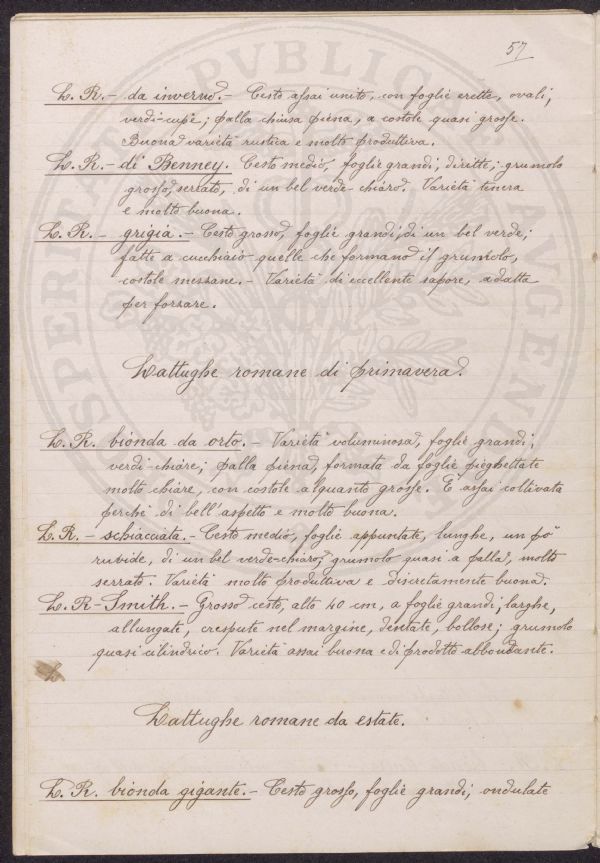 57
L. R. - da inverno. - Cesto assai unito, con foglie erette, ovali,
verdi-cupe; palla chiusa piena, a costole quasi grosse.
Buona varietà rustica e molto produttiva.
L. R. - di Benney. Cesto medio, foglie grandi, diritte; grumolo
grosso, serrato, di un bel verde-chiaro. Varietà tenera
e molto buona.
L. R. - grigia. - Cesto grosso, foglie grandi, di un bel verde;
fatte a cucchiaio quelle che formano il grumolo,
costole mezzane. - Varietà di eccellente sapore, adatta
per forzare.
Lattughe romane di primavera.
L. R. bionda da orto. - Varietà voluminosa, foglie grandi,
verdi-chiare; palla piena, formata da foglie pieghettate
molto chiare, con costole alquanto grosse. È assai coltivata
perchè di bell'aspetto e molto buona.
L. R. - schiacciata. - Cesto medio, foglie appuntate, lunghe, un pò
ruvide, di un bel verde-chiaro; grumolo quasi a palla, molto
serrato. Varietà molto produttiva e discretamente buona.
L. R - Smith. - Grosso cesto, alto 40 cm, a foglie grandi, larghe,
allungate, crespute nel margine, dentate, bollose; grumolo
quasi cilindrico. Varietà assai buona e di prodotto abbondante.
Lattughe romane da estate.
L. R. bionda gigante. - Cesto grosso, foglie grandi, ondulate